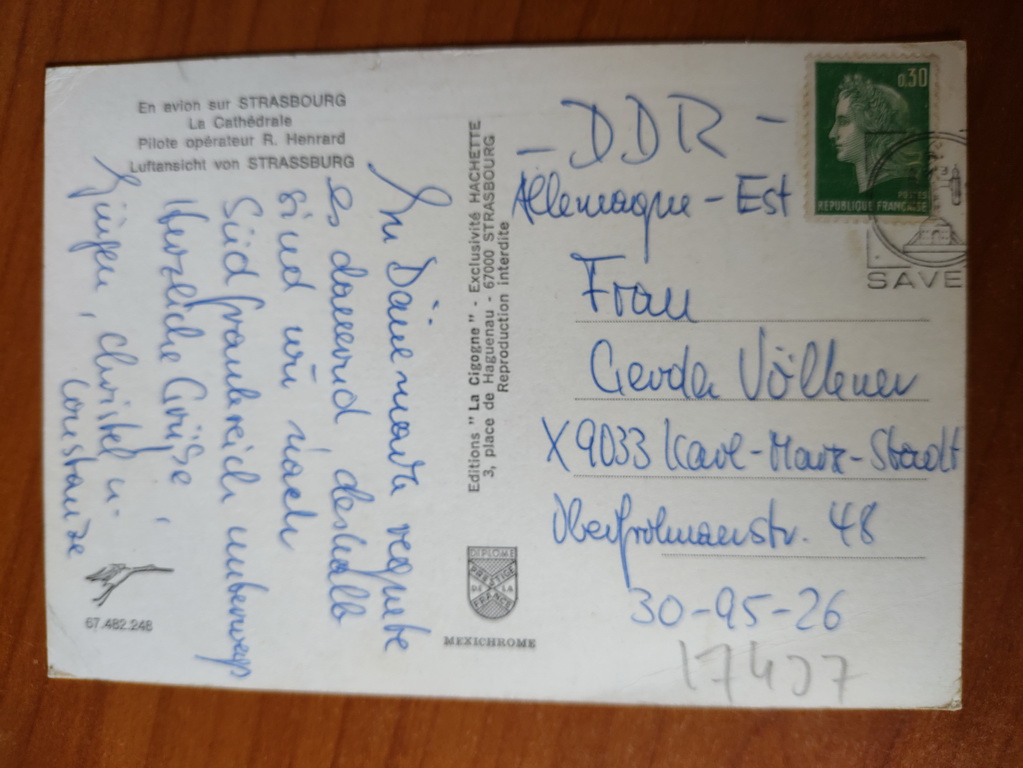 En avion sur STRASBOURG
La Cathédrale
Pilote opérateur R. Henrard
Luftansicht von STRASSBURG
In Dänemark regnete
es dauernd deshalb
sind wir nach
Südfrankreich unterwegs
Herzliche Grüße
Jürgen, Christel u.
Constanze
67.482.248
Editions "La Cigogne" - Exclusivité HACHETTE
3, place de Haguenau - 67000 STRASBOURG
Reproduction interdite
DIPLOME
PRESTIGE
DE LA
FRANCE
MEXICHROME
0,30
POSTES
REPUBLIQUE FRANÇAISE
SAVE
- DDR -
Allemagne - Est
Frau
Gerda Völkener
X 9033 Karl-Marx-Stadt
48
30-95-26